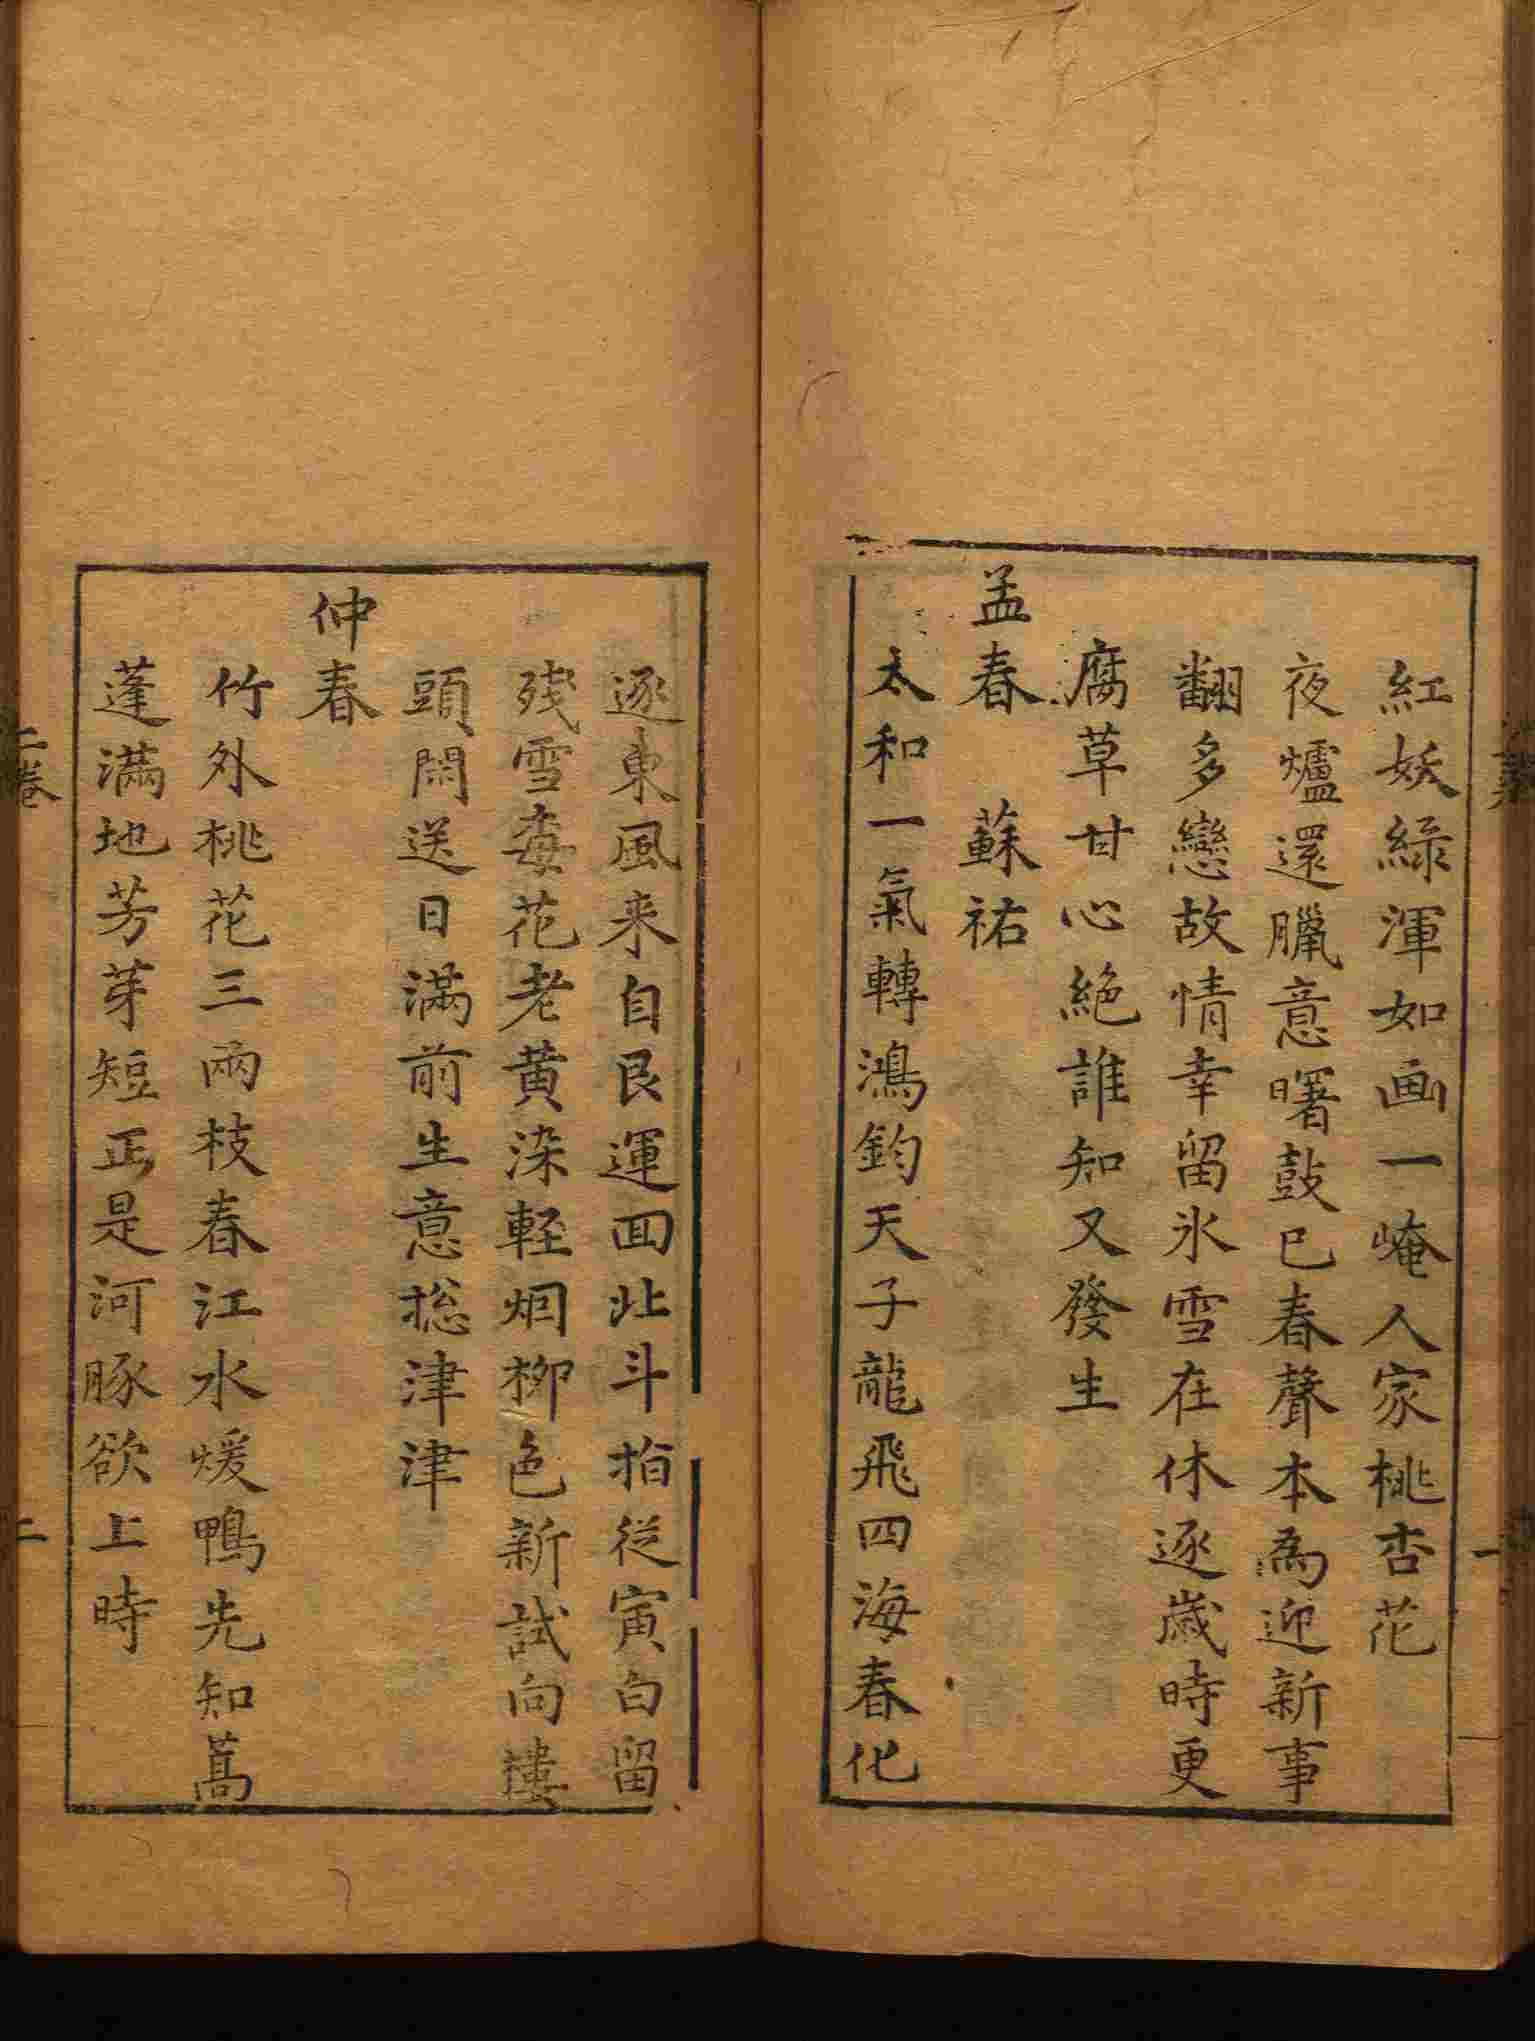 紅妖綠渾如画一崦人家桃杏花
夜爐還臘意曙鼓已春聲本為迎新事
翻多戀故情幸留氷雪在休逐歲時更
腐草甘心絕誰知又發生
孟春　蘇祐
太和一氣轉鴻鈞天子龍飛四海春化
逐東風来自艮運囬北斗指從寅白留
殘雪毎花老黄染軽烟柳色新試向摟
頭閑送日滿前生意捴津津
仲春
竹外桃花三兩枝春江水煖鴨先知蔞
蓬滿地芳芽短正是河豚欲上時
二卷
二
一